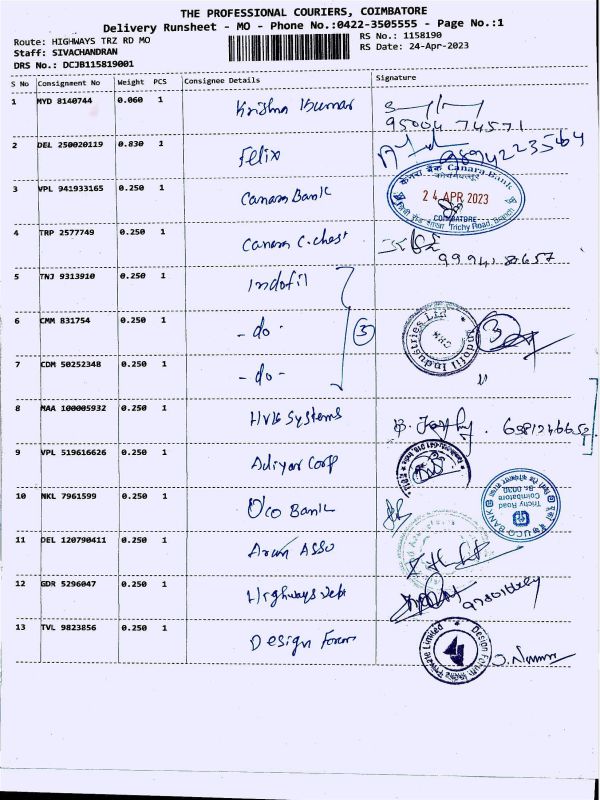 THE PROFESSIONAL COURIERS, COIMBATORE
Delivery Runsheet - MO - Phone No.:0422-3505555 - Page No.:1
Route: HIGHWAYS TRZ RD MO
RS No.: 1158190
Staff: SIVACHANDRAN
RS Date: 24-Apr-2023
DRS No.: DCJB115819001
S No Consignment No Weight PCS Consignee Details Signature
1 MYD 8140744 0.060 1 Krishna Kumar
95004 74571
2 DEL 250020119 0.830 1 Felix
3 VPL 941933165 0.250 1 Canara Bank
केनरा बैंक Canara Bank
24 APR 2023
COIMBATORE
Trichy Road, Branch
4 TRP 2577749 0.250 1 Canara C.chest
5 TNJ 9313910 0.250 1 Indofil
6 CMM 831754 0.250 1 - do - 3
Indofil Industries Ltd
3
7 CDM 50252348 0.250 1 - do -
8 MAA 100005932 0.250 1 Systems
9 VPL 519616626 0.250 1 Adiyar Corp
10 NKL 7961599 0.250 1 Uco Bank
UCO BANK
Trichy Road
Coimbatore
11 DEL 120790411 0.250 1 Arun Asso
12 GDR 5296047 0.250 1 Highways Dept
13 TVL 9823856 0.250 1 Design Forum
Design Forum India Private Limited